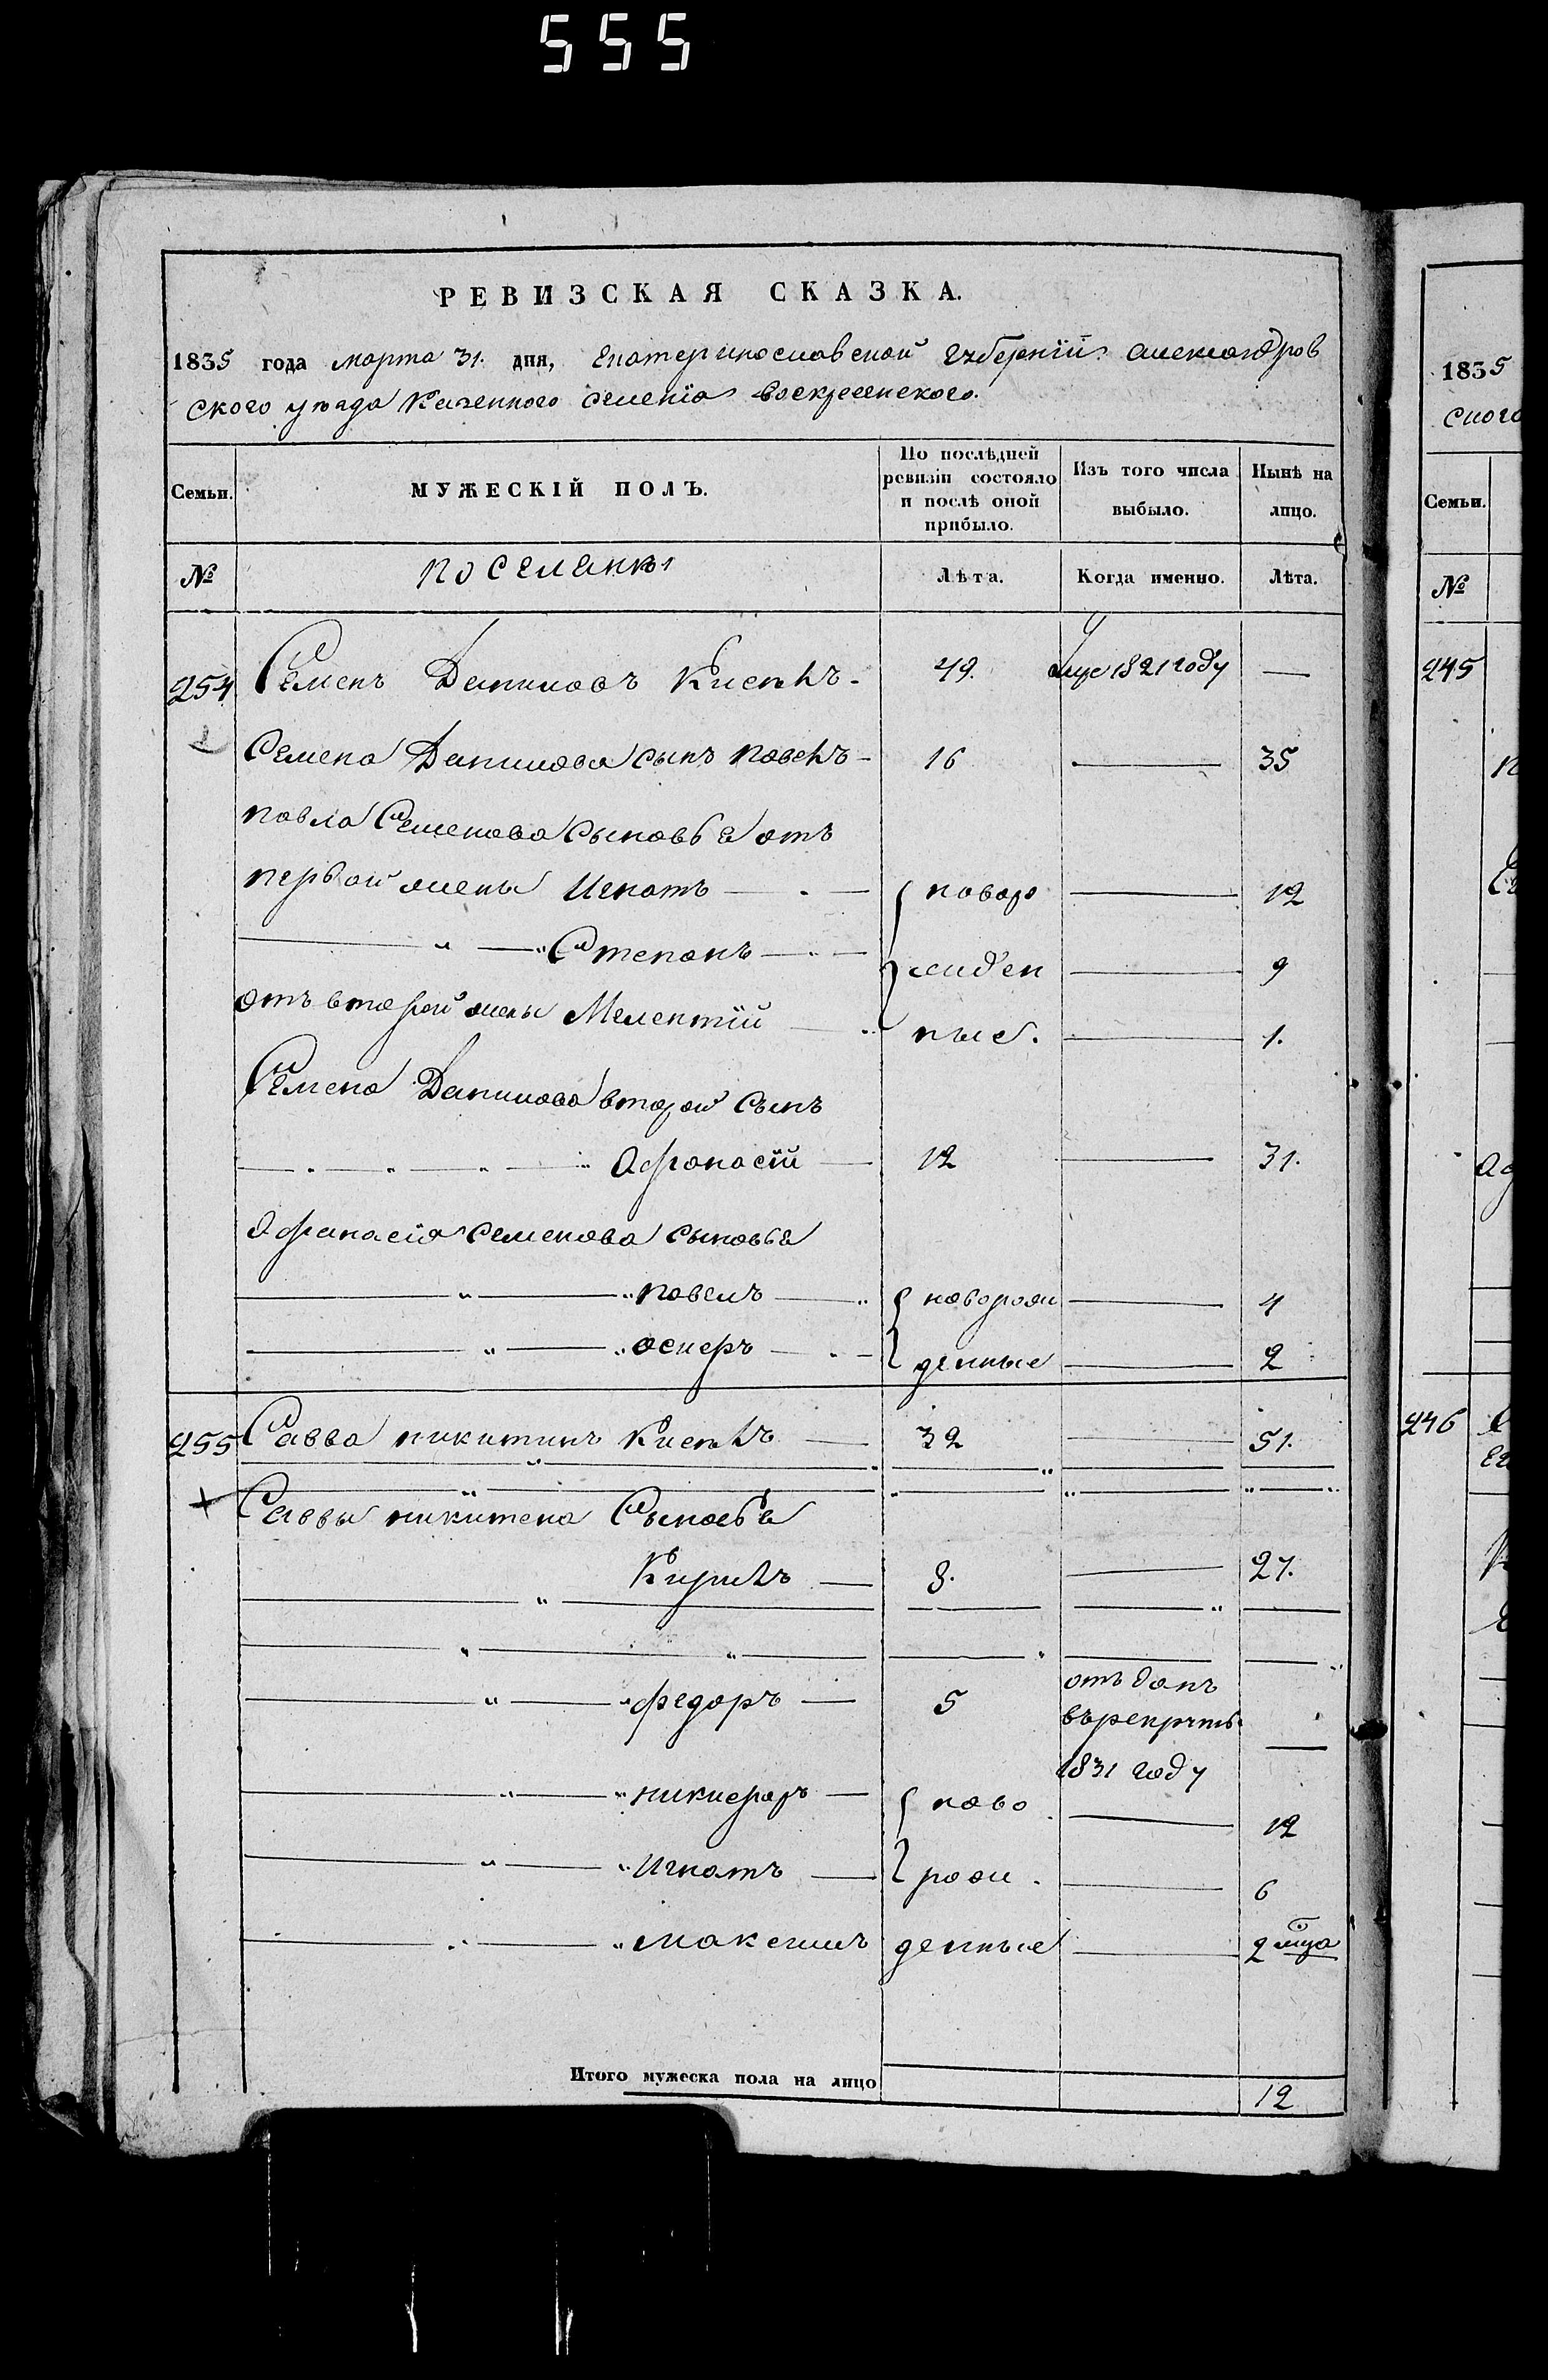 555
РЕВИЗСКАЯ СКАЗКА.
1835 года марта 31. дня, Екатеринославской губернїи Александров
ского уезда Казенного селенїя Воскресенского.
Семьи.
МУЖЕСКІЙ ПОЛЪ.
По послѣдней ревизіи состояло и послѣ оной прибыло.
Изъ того числа выбыло.
Нынѣ на лицо.
№ поселяне Лѣта. Когда именно. Лѣта.
254 Семенъ Даниловъ 49. 1821 году —
Семена Данилова сынъ Павелъ - 16 — 35
Павла Семенова сыновья отъ
первой жены Игнатъ — новоро — 12
Степанъ — жиден — 9
отъ второй жены Мелентїй — ные. — 1.
Семена Данилова второй сынъ
Афонасїй — 12 — 31.
Афанасїя Семенова сыновья
Павелъ — новорож — 4
— денные — 2
255 Савва Никитинъ — 32 — 51.
Саввы Никитена Сыновья
Кирилъ — 8. — 27.
Федоръ — 5 отъданъ
въ рекруты
1831 году —
Никифоръ — ново — 12
Игнатъ — рож — 6
Максимъ денные — 2 мца
Итого мужеска пола на лицо 12
1835
ского
Семьи.
№
245
246